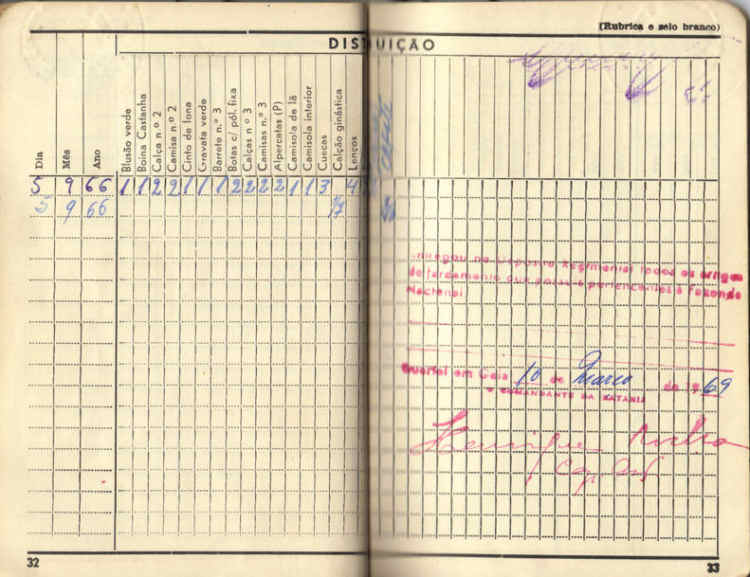 (Rubrica e selo branco)
DIST UIÇÃO
Dia
Mês
Ano
Blusão verde
Boina Castanha
Calça n o 2
Camisa n o 2
Cinto de lona
Gravata verde
Barrete n.º 3
Botas c/ pól. fixa
Calças n o 3
Camisas n.º 3
Alpercatas (P)
Camisola de lã
Camisola interior
Cuecas
Calção ginástica
Lenços
5 9 66 1 1 2 2 1 1 1 2 2 2 2 1 1 3 4
5 9 66
no Deposito Regimental todos os artigos
de fardamento que pertencentes á Fazenda
Nacional
Quartel em Gaia 10 de Março de 1969
O COMANDANTE DA BATARIA
Henrique
32
33